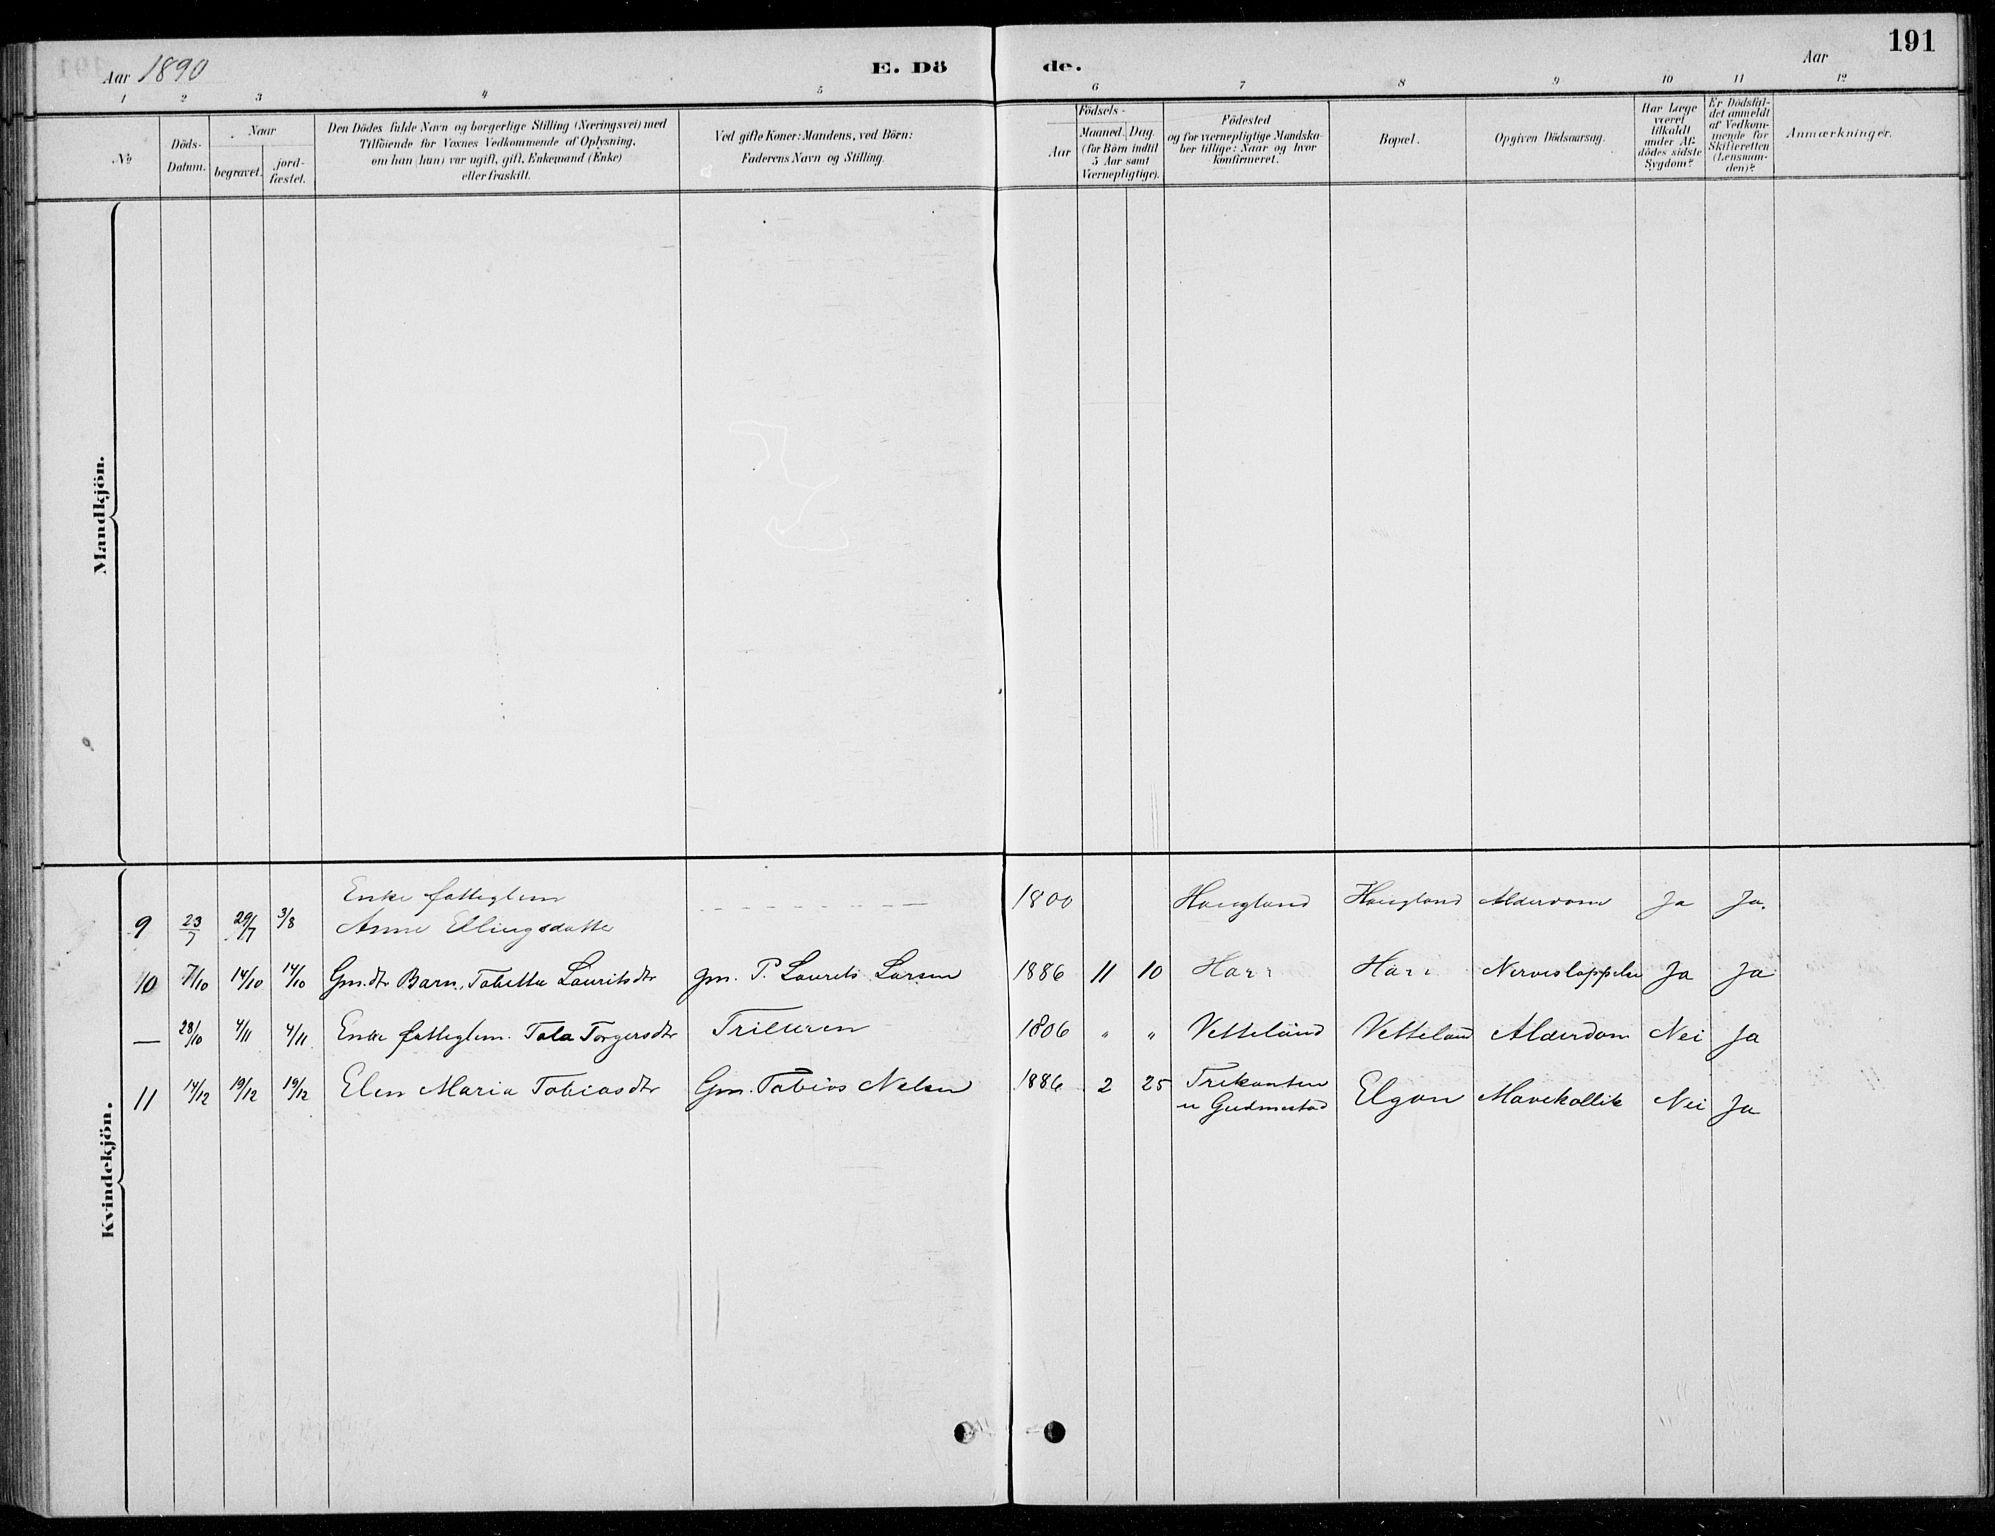 191
Aar 1890
E. Dö
de.
Aar
1 2 3 4 5 6 7 8 9 10 11 12
№
Döds-
Datum.
Naar
begravet.
jord-
fæstet.
Den Dödes fulde Navn og borgerlige Stilling (Næringsvei) med
Tilföiende for Voxnes Vedkommende af Oplysning,
om han (hun) var ugift, gift, Enkemand (Enke)
eller fraskilt.
Ved gifte Koner: Mandens, ved Börn:
Faderens Navn og Stilling.
Födsels-
Aar
Maaned. Dag.
(for Börn indtil
5 Aar samt
Værnepligtige).
Födested
og for værnepligtige Mandska-
ber tillige: Naar og hvor
konfirmeret.
Bopæl.
Opgiven Dödsaarsag.
Har Læge
været
tilkaldt
under Af-
dödes sidste
Sygdom?
Er Dödsfal-
det anmeldt
af Vedkom-
mende for
Skifteretten
(Lensman-
den)?
Anmærkninger.
Mandkjön.
Kvindekjön.
Enke fatteglem
9 23/7 29/7 3/8 Anne Ellingsdatter 1800 Haugland Haugland Alderdom Ja Ja.
10 7/10 14/10 14/10 Gm.dtr Barn, Tabetha Lauritsdtr gm. P. Laurits Larsen 1886 11 10 Harr Harr Nerveslappelse Ja Ja
— 28/10 4/11 4/11 Enke fatteglem. Tala Torgersdtr 1806 " " Vetteland Vetteland Alderdom Nei Ja
11 14/12 19/12 19/12 Elen Maria Tobiasdtr Gm. Tobias Nelsen 1886 2 25 Trekanten
u Gudmestad Elgan Mavekollik Nei Ja